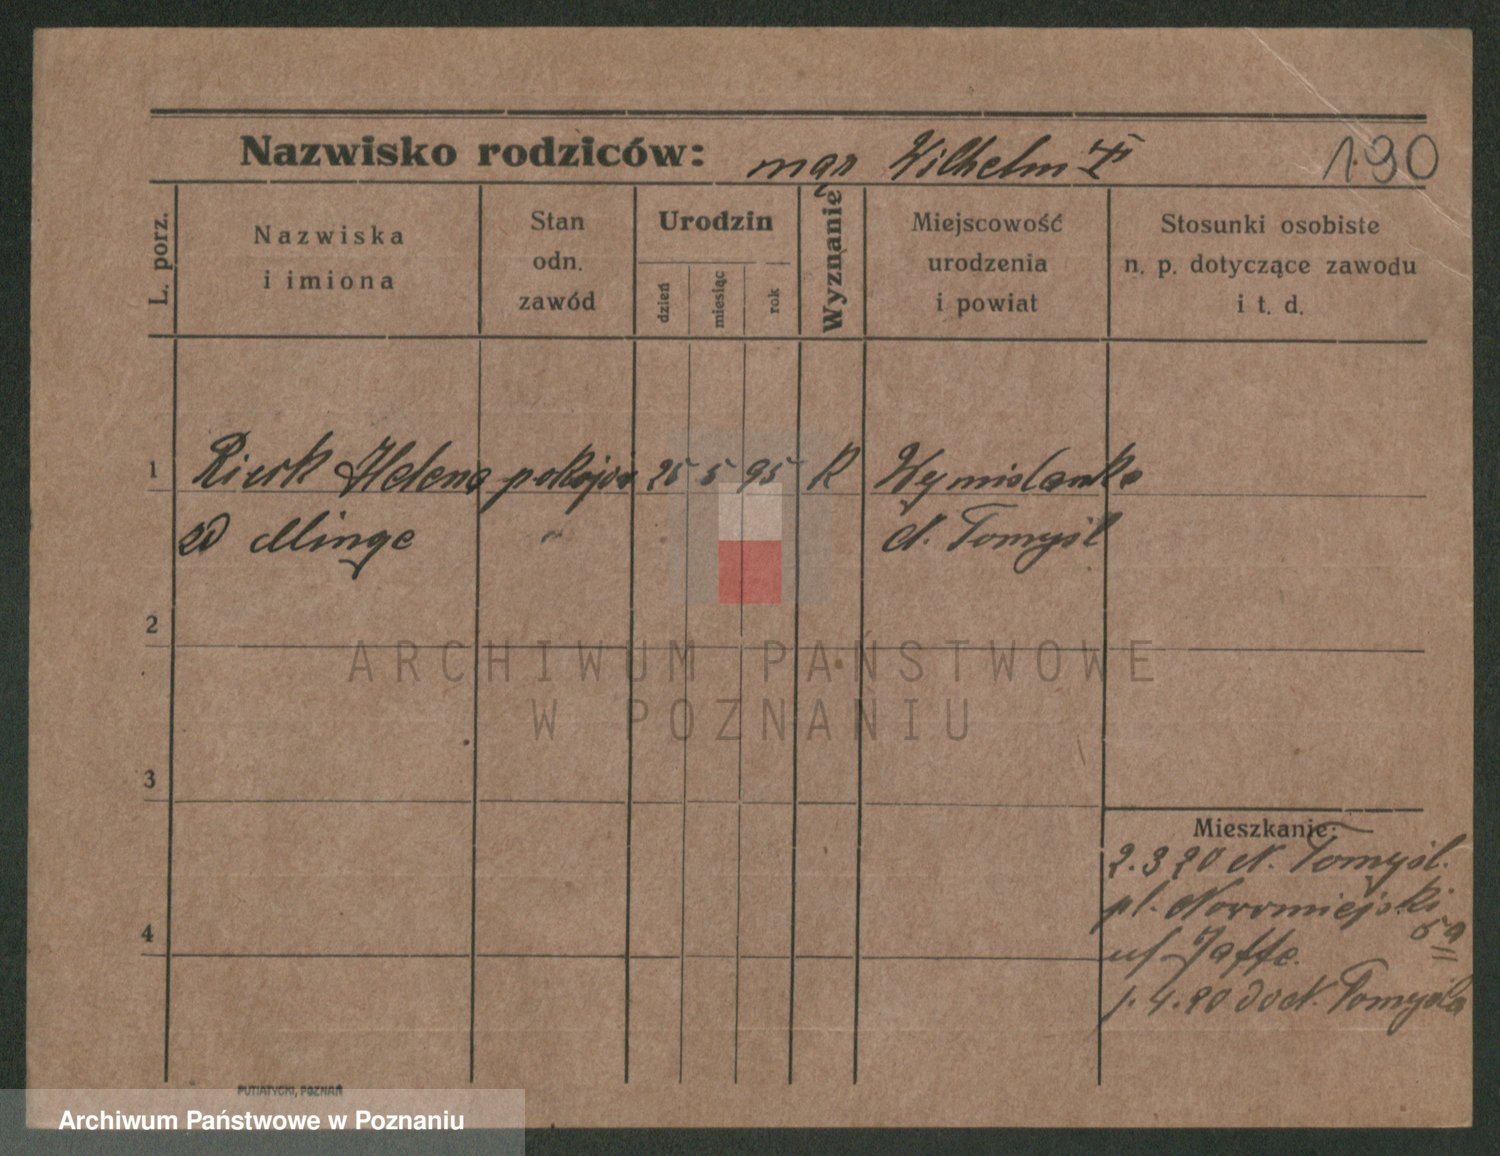 Nazwisko rodziców: mąż Wilhelm
190
L. porz.
Nazwiska
i imiona
Stan
odn.
zawód
Urodzin
dzień
miesiąc
rok
Wyznanie
Miejscowość
urodzenia
i powiat
Stosunki osobiste
n. p. dotyczące zawodu
i t. d.
1
Helena pokojow 25 5 95 K Wymislanka
Minge N. Tomyśl
2
3
4
Mieszkanie:
2.3 20 N. Tomyśl.
pl. Nowomiejski
5a
II
Jaffe.
1.4.20 do N. Tomyśla
PUTIATYCKI, POZNAŃ
ARCHIWUM PAŃSTWOWE
W POZNANIU
Archiwum Państwowe w Poznaniu